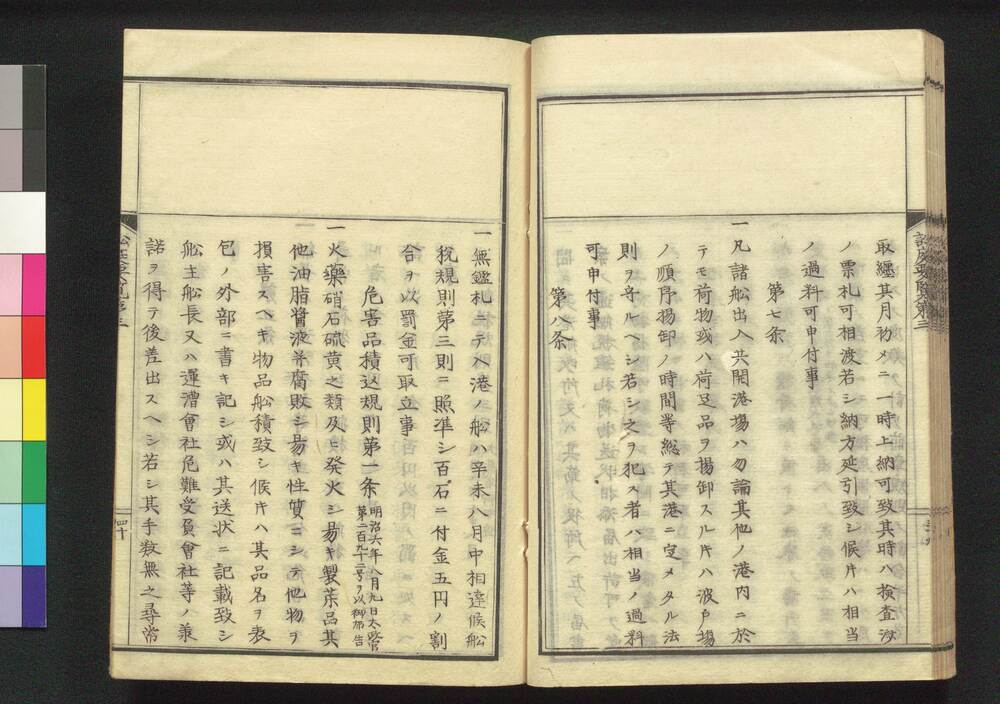 取纒其月初メニ一時上納可致其時ハ検査済
ノ票札可相渡若シ納方延引致シ候片ハ相当
ノ過料可申付事
第七条
一凡諸舩出入共開港場ハ勿論其他ノ港内ニ於
テモ荷物或ハ荷足品ヲ揚卸スル片ハ波戸場
ノ順序揚卸ノ時間等総テ其港ニ定メタル法
則ヲ守ルヘシ若シ之ヲ犯ス者ハ相当ノ過料
可申付事
第八条
一無鑑札ニテ入港ノ舩ハ辛未八月中相達候舩
税規則第三則ニ照準シ百石ニ付金五円ノ割
合ヲ以罰金可取立事
危害品積込規則第一条 明治六年八月九日太政官
第二百九十二号ヲ以御布告
一火藥硝石硫黄之類及ヒ発火シ易キ製藥品其
他油脂醤液并腐敗シ易キ性質ニシテ他物ヲ
損害スヘキ物品舩積致シ候片ハ其品名ヲ表
包ノ外部ニ書キ記シ或ハ其送状ニ記載致シ
舩主舩長又ハ運漕會社危難受負會社等ノ兼
諾ヲ得テ後差出スヘシ若シ其手数無之尋常
四十